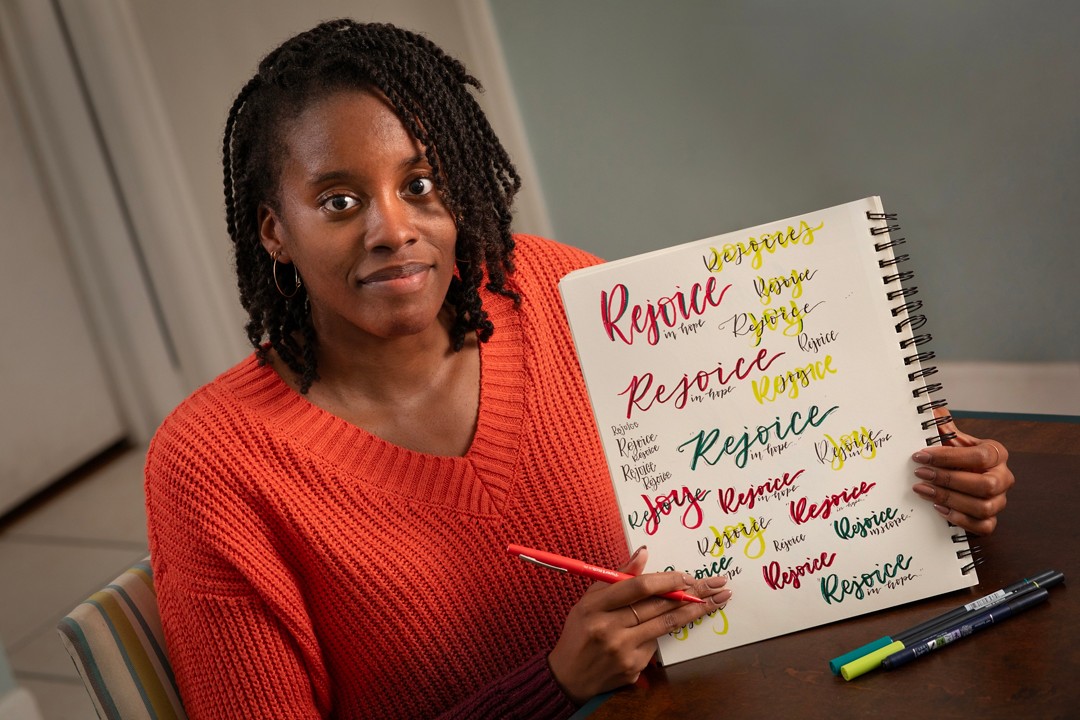 Rejoices
Rejoice
in hope
Rejoice
joy
Rejoice
joy
Rejoice
Rejoice
in hope
Rejoice
Rejoice
Rejoice
Rejoice
Rejoice
Rejoice
Rejoice
in hope
Rejoice
in hope
Joy
Rejoice
Joy
Rejoice
in hope
Rejoice
in hope
Rejoice
in hope
Rejoice
Joy
Rejoice
Rejoice
Rejoice
in hope